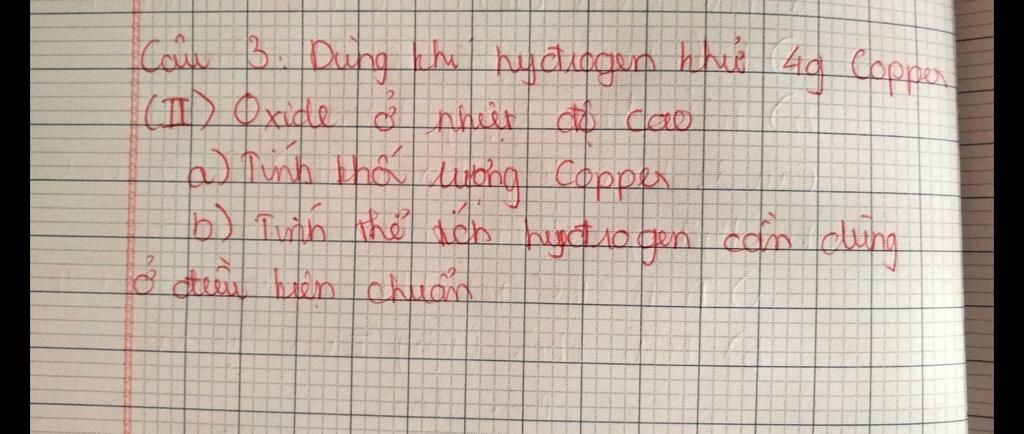 Câu 3. Dùng khí hydrogen khử 4g Copper
(II) Oxide ở nhiệt độ cao
a) Tính khối lượng Copper
b) Tính thể tích hydrogen cần dùng
ở điều kiện chuẩn